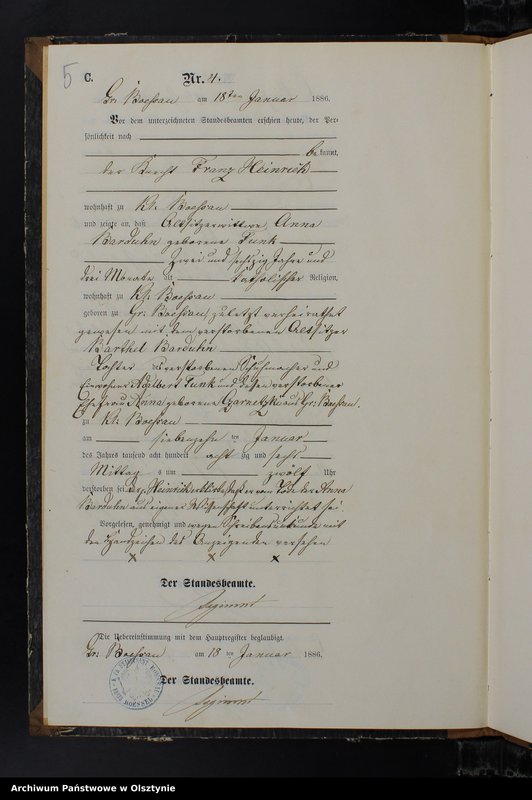 5 C. Nr. 4.
Gr. Boessau am 18ten Januar 1886.
Vor dem unterzeichneten Standesbeamten erschien heute, der Per-
sönlichkeit nach
be kannt,
der Knecht Franz Heinrich
wohnhaft zu Kl. Boessau
und zeigte an, daß Besitzerwittwe Anna
Barduhn geborene Funk
Zwei und sechszig Jahre und
drei Monate alt katholischer Religion,
wohnhaft zu Kl. Boessau
geboren zu Gr. Boessau, zuletzt verheirathet
gewesen mit dem verstorbenen Besitzer
Barthel Barduhn
Tochter verstorbenen Schuhmacher und
Einwohner Funk und dessen verstorbener
Ehefrau Anna geborene Czarnetzki aus Gr: Boessau.
zu Kl. Boessau
am siebenzehn ten Januar
des Jahres tausend acht hundert acht zig und sechs
Mittag s um zwölf Uhr
verstorben sei. Der p. Heinrich erklärte, daß er vom Tode der Anna
Barduhn aus eigener Wissenschaft unterrichtet sei.
Vorgelesen, genehmigt und wegen Schreibensunkunde mit
den Handzeichen des Anzeigenden versehen
x x x
Der Standesbeamte.
Die Uebereinstimmung mit dem Hauptregister beglaubigt.
Gr. Boessau am 18 ten Januar 1886.
Der Standesbeamte.
Archiwum Państwowe w Olsztynie